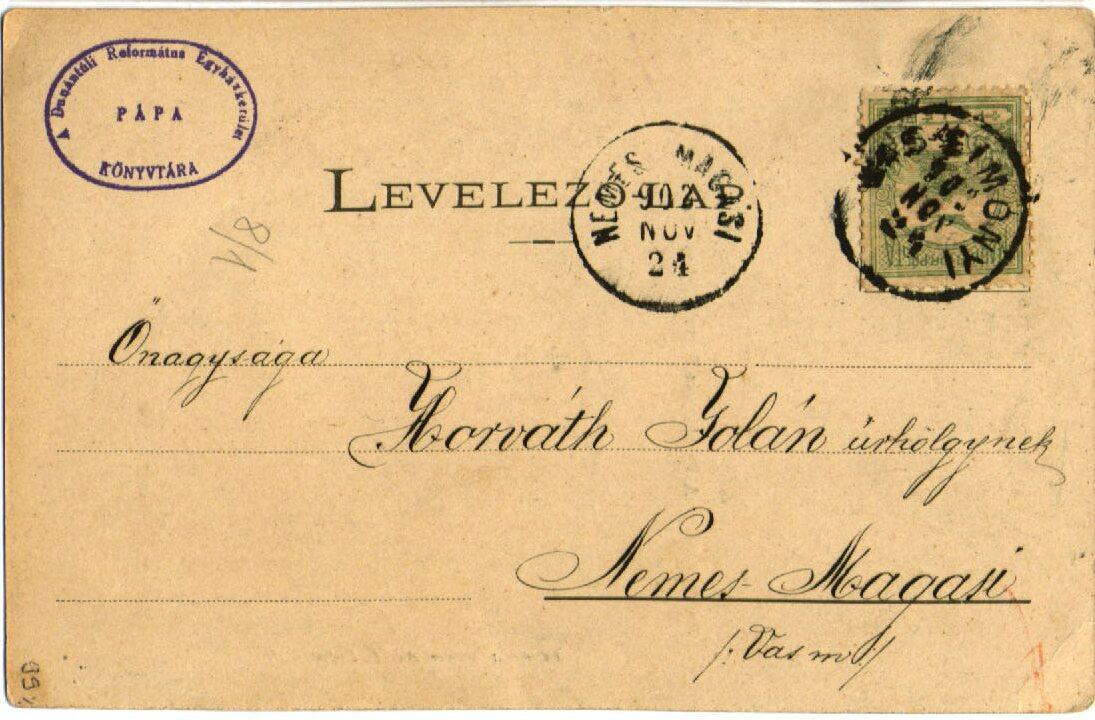 A Dunántúli Református Egyházkerület
PÁPA
KÖNYVTÁRA
LEVELEZŐ-LAP
NEMES MAGASI
902
NOV
24
SIMONYI
NOV
1/8
Őnagysága
Horváth Jolán úrhölgynek
Nemes-Magasi
/: Vas m :/